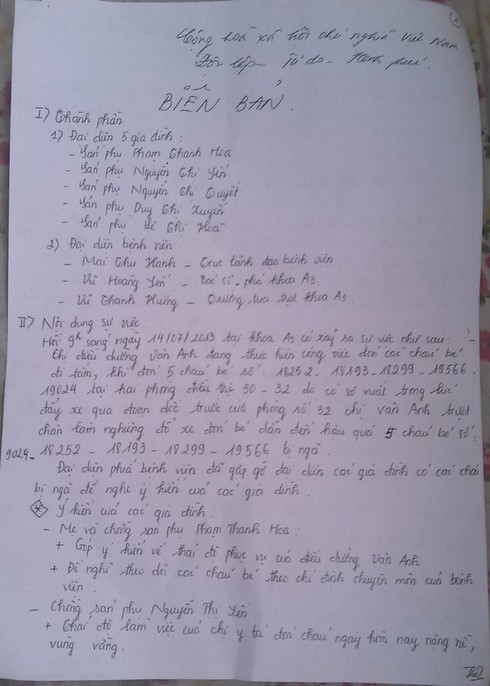 Cộng hoà xã hội chủ nghĩa Việt Nam
Độc lập - Tự do - Hạnh phúc.
BIÊN BẢN.
I) Thành phần
1) Đại diện 5 gia đình:
- Sản phụ Phạm Thanh Hoa
- Sản phụ Nguyễn Thị Yến
- Sản phụ Nguyễn Thị Tuyết
- Sản phụ Duy Thị Xuyến
- Sản phụ Thị Hoà
2) Đại diện bệnh viện
- Mai Thu Hạnh - lãnh đạo bệnh viện
- Vũ Hoàng Yến - Bác sĩ - phó khoa A3
- Vũ Thanh Hường - Điều dưỡng khoa A3
II) Nội dung sự việc:
Hồi 9h sáng ngày 14/07/2013 tại khoa A3 có xảy ra sự việc như sau:
Chị điều dưỡng Vân Anh đang thực hiện công việc đón các cháu bé
đi tắm, khi đón 5 cháu bé số: 18252 - 18193 - 18299 - 19566 -
19024 tại hai phòng điều trị 30 - 32 do có sơ xuất trong lúc
đẩy xe qua đoạn dốc trước cửa phòng số 32 chị Vân Anh trượt
chân làm nghiêng đổ xe đón bé dẫn đến hậu quả 5 cháu bé số:
9024 - 18252 - 18193 - 18299 - 19566 bị ngã.
Đại diện phía bệnh viện đã gặp gỡ đại diện các gia đình có các cháu
bị ngã để nghe ý kiến của các gia đình.
* Ý kiến của các gia đình.
- Mẹ và chồng sản phụ Phạm Thanh Hoa:
+ Góp ý kiến về thái độ phục vụ của điều dưỡng Vân Anh
+ Đề nghị theo dõi các cháu bé theo chỉ định chuyên môn của bệnh
viện.
- Chồng sản phụ Nguyễn Thị Yến.
+ Thái độ làm việc của chị y tá đón cháu ngày hôm nay nặng nề,
vùng vằng.